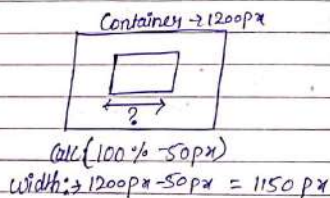 Container → 1200px
?
calc(100% -50px)
width:→ 1200px-50px = 1150px